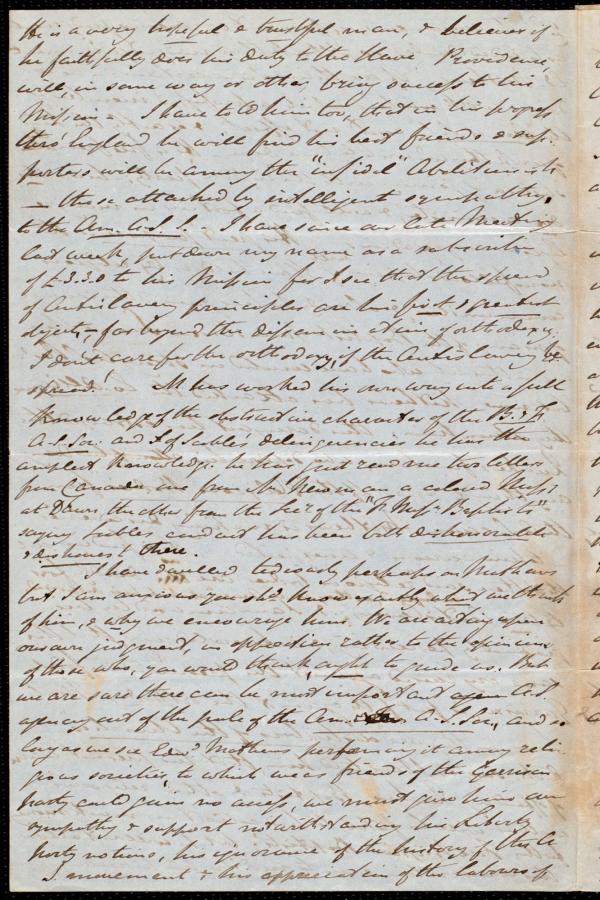 He is a very hopeful & trustful man, & believes if
he faithfully does his duty to the Slave Providence,
will, in some way or other bring success to his
Mission - I have told him too, that in his progress
thro' England he will find his best friends & sup-
porters will be among the "infidel" Abolitionists
- those attached by intelligent sympathy,
to the Am. A.S.S. - I have since our late Meeting
last week, put down my name as a subscriber
of £3.3.0 to his Mission for I see that the spread
of Antislavery principles are his first & greatest
objects, - far beyond the dissemination of orthodoxy
I don't care for the orthodoxy, if the Antislavery be
spread! M has worked his own way into a full
knowledge of the obstructive character of the B. & F.
A.S. Soc. and of Scoble's delinquencies he has the
amplest knowledge. he has just read me two letters
from Canada, one from Newman a colored Missy
at Dawn, the other from the Secy of the "F. Missy Baptists"
saying Scobles conduct has been both dishonorable
& dishonest there.
I have dwelled tediously perhaps on Mathews
but I am anxious you shd know exactly what we think
of him, & why we encourage him. We are acting upon
our own judgment, in opposition rather to the opinions
of those who, you would think, ought to guide us. But
we are sure there can be most important A.S.
agency out of the pale of the Am. A.S. Soc, and so
long as we see Edwd Mathews performing it among reli-
gious societies, to which we as friends of the Garrison
party could gain no access, we must give him our
sympathy & support notwithstanding his Liberty
party notions, his ignorance of the history of the A
S movement & his appreciation of the labours of